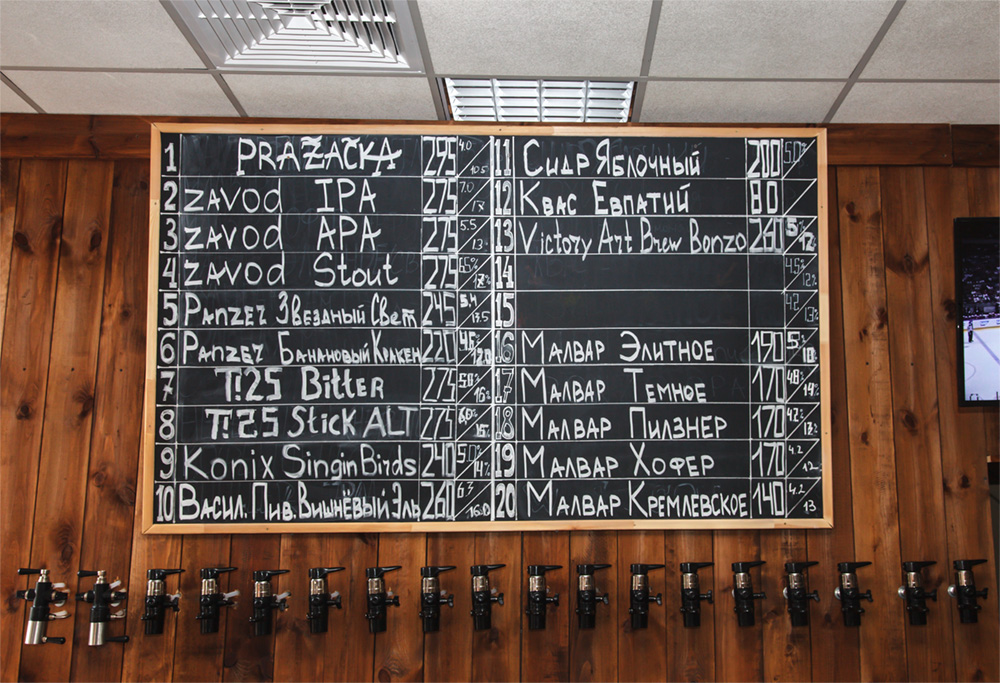 1 PRAŽAČKA 295 4.0 10.5
2 ZAVOD IPA 275 7.0 17
3 ZAVOD APA 275 5.5 13
4 ZAVOD Stout 275 6.5%
5 Panzer Звездный Свет 245 5.4 13.5
6 Panzer Банановый Кракен 220 4.5% 12.0
7 T.25 Bitter 275 5.0% 16%
8 T.25 Stick ALT 275 6.0% 15%
9 Konix Singin Birds 240 5.0% 14%
10 Васил. Пив. Вишнёвый Эль 260 6.3 16.0
11 Сидр Яблочный 200 5.0%
12 Квас Евпатий 80
13 Victory Art Brew Bonzo 260 5% 12
14 4.5% 12%
15 4.2 13%
16 Малвар Элитное 190 5%
17 Малвар Темное 170 4.8%
18 Малвар Пилзнер 170 4.2%
19 Малвар Хофер 170 4.2 12
20 Малвар Кремлевское 140 4.2 13